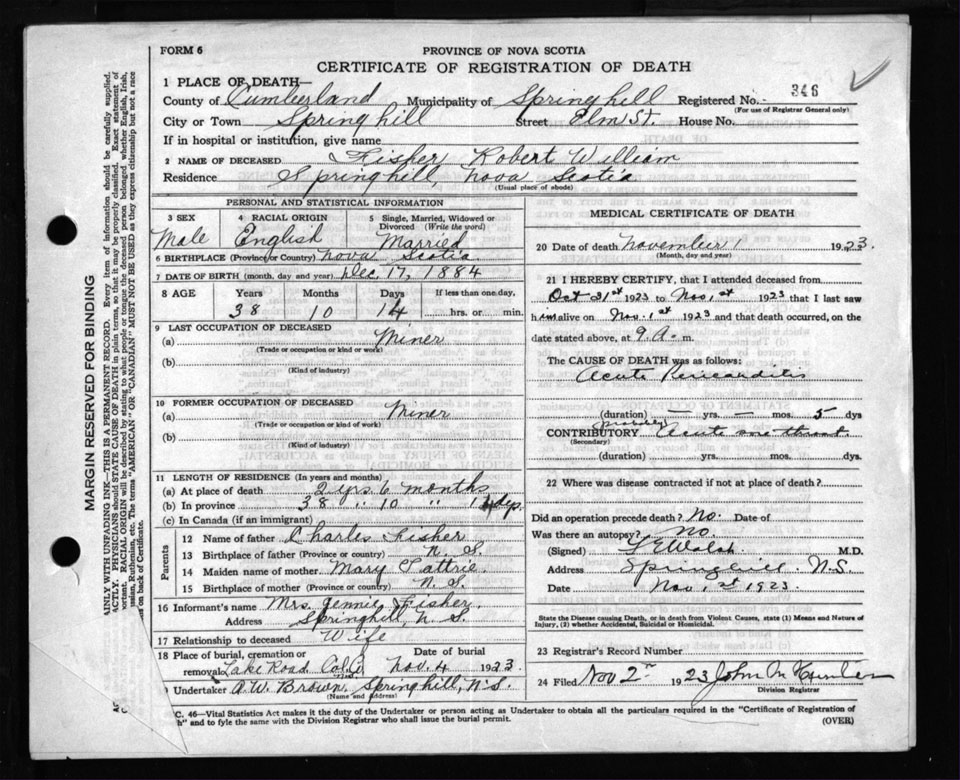 FORM 6
PROVINCE OF NOVA SCOTIA
CERTIFICATE OF REGISTRATION OF DEATH
1 PLACE OF DEATH—
County of Cumberland Municipality of Springhill Registered No. 346
(For use of Registrar General only)
City or Town Springhill Street Elm St. House No.
If in hospital or institution, give name
2 NAME OF DECEASED Fisher Robert William
Residence Springhill, Nova Scotia
(Usual place of abode)
PERSONAL AND STATISTICAL INFORMATION
3 SEX 4 RACIAL ORIGIN 5 Single, Married, Widowed or Divorced (Write the word)
Male English Married
6 BIRTHPLACE (Province or Country) Nova Scotia
7 DATE OF BIRTH (month, day and year) Dec. 17, 1884
8 AGE Years Months Days If less than one day,
38 10 14 hrs. or min.
9 LAST OCCUPATION OF DECEASED
(a) Miner
(Trade or occupation or kind or work)
(b)
(Kind of industry)
10 FORMER OCCUPATION OF DECEASED
(a) Miner
(Trade or occupation or kind of work)
(b)
(Kind of industry)
11 LENGTH OF RESIDENCE (In years and months)
(a) At place of death 2 yrs. 6 months
(b) In province 38 " 10 " 14 dys.
(c) In Canada (if an immigrant)
Parents
12 Name of father Charles Fisher
13 Birthplace of father (Province or country) N. S.
14 Maiden name of mother Mary Tattrie
15 Birthplace of mother (Province or country) N. S.
16 Informant's name Mrs. Jennie Fisher,
Address Springhill N. S.
17 Relationship to deceased Wife
18 Place of burial, cremation or removal Date of burial
Lake Road Nov. 4 1923
Undertaker A. W. Brown, Springhill, N.S.
(Name and address)
MEDICAL CERTIFICATE OF DEATH
20 Date of death November 1 1923.
(Month, day and year)
21 I HEREBY CERTIFY, that I attended deceased from
Oct 31st 1923 to Nov 1st 1923 that I last saw
him alive on Nov. 1st 1923 and that death occurred, on the
date stated above, at 9. A. m.
The CAUSE OF DEATH was as follows:
Acute Pericarditis
(duration) — yrs. — mos. 5 dys
probably
CONTRIBUTORY Acute sore throat.
(Secondary)
(duration) yrs. mos. dys.
22 Where was disease contracted if not at place of death?
Did an operation precede death? No. Date of
Was there an autopsy? No.
(Signed) M.D.
Address Springhill N.S.
Date Nov 1st 1923.
State the Disease causing Death, or in death from Violent Causes, state (1) Means and Nature of
Injury, (2) whether Accidental, Suicidal or Homicidal.
23 Registrar's Record Number
24 Filed Nov 2nd 1923
Division Registrar
C. 46—Vital Statistics Act makes it the duty of the Undertaker or person acting as Undertaker to obtain all the particulars required in the "Certificate of Registration of
h" and to fyle the same with the Division Registrar who shall issue the burial permit. (OVER)
MARGIN RESERVED FOR BINDING
AINLY WITH UNFADING INK—THIS IS A PERMANENT RECORD. Every item of information should be carefully supplied.
ACTLY. PHYSICIANS should STATE CAUSE OF DEATH in plain terms, so that it may be properly classified. Exact statement of
ortant. RACIAL ORIGIN will be described by stating to what people or tongue the deceased person belonged whether English, Irish,
ussian, Ruthenian, etc. The terms "AMERICAN" or "CANADIAN" MUST NOT BE USED as they express citizenship but not a race
on back of Certificate.